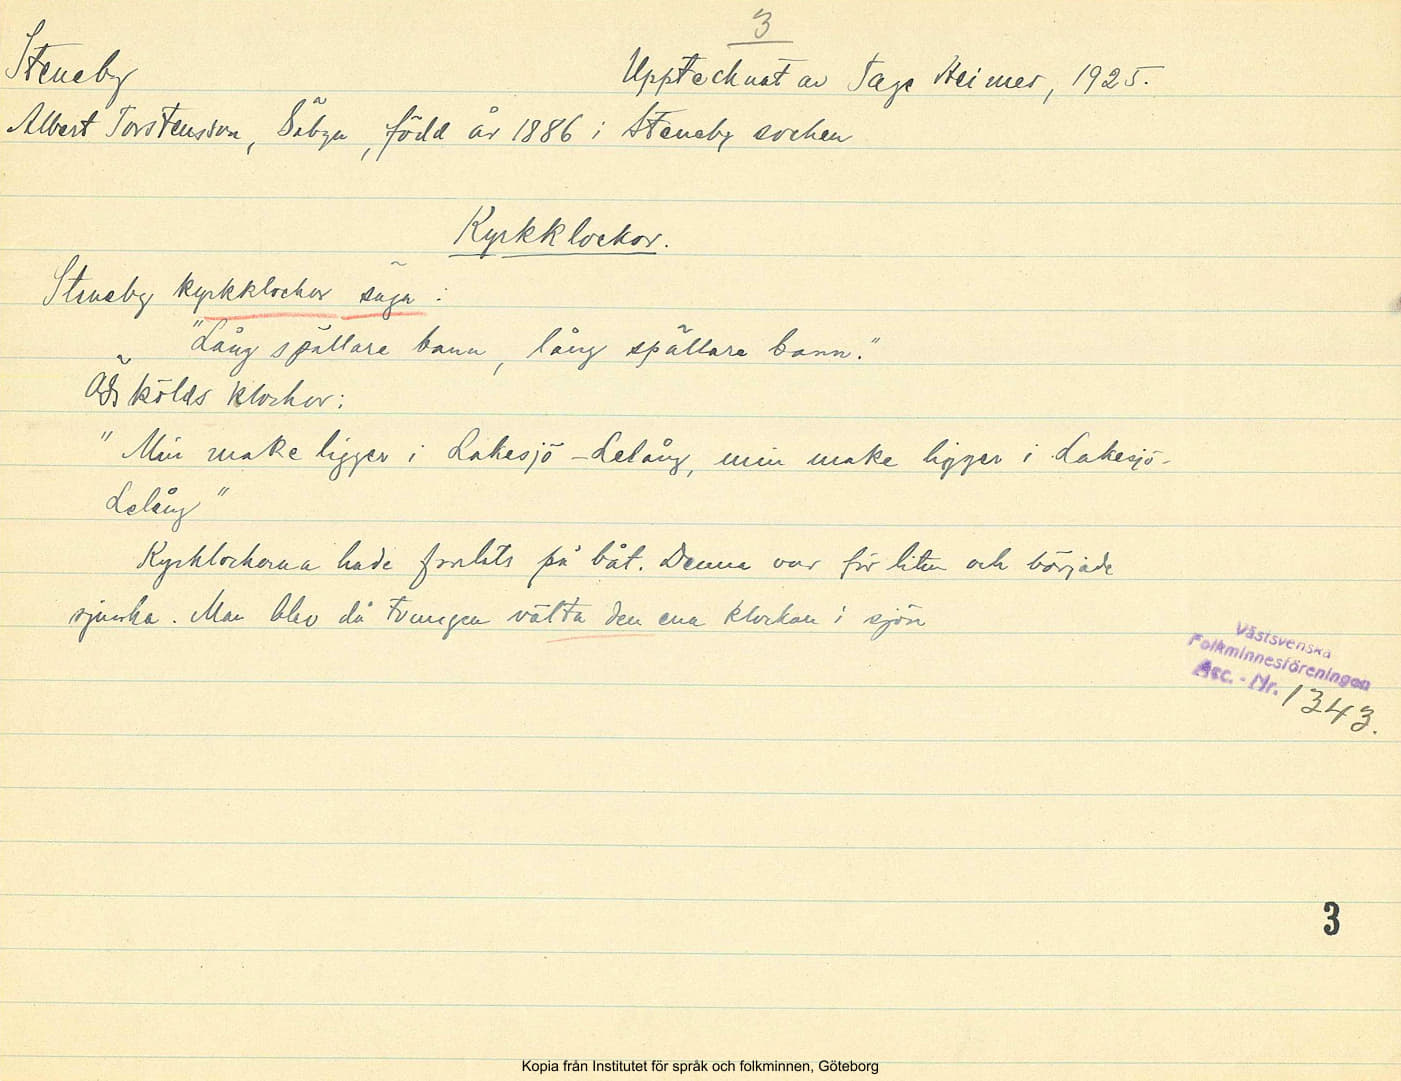 3
Steneby
Upptecknat av Tage Heimer, 1925.
Albert Torstensson, Säbyn, född år 1886 i Steneby socken
Kyrkklockor.
Steneby kyrkklockor säga :
"Lång spällare bann, lång spällare bann."
Ödskölds klockor:
" Min make ligger i Lakesjö - Lelång, min make ligger i Lakesjö-
Lelång"
Kyrklockorna hade forslats på båt. Denna var för liten och började
sjunka. Man blev då tvungen välta den ena klockan i sjön
Västsvenska
Folkminnesföreningen
Acc. - Nr. 1343.
3
Kopia från Institutet för språk och folkminnen, Göteborg